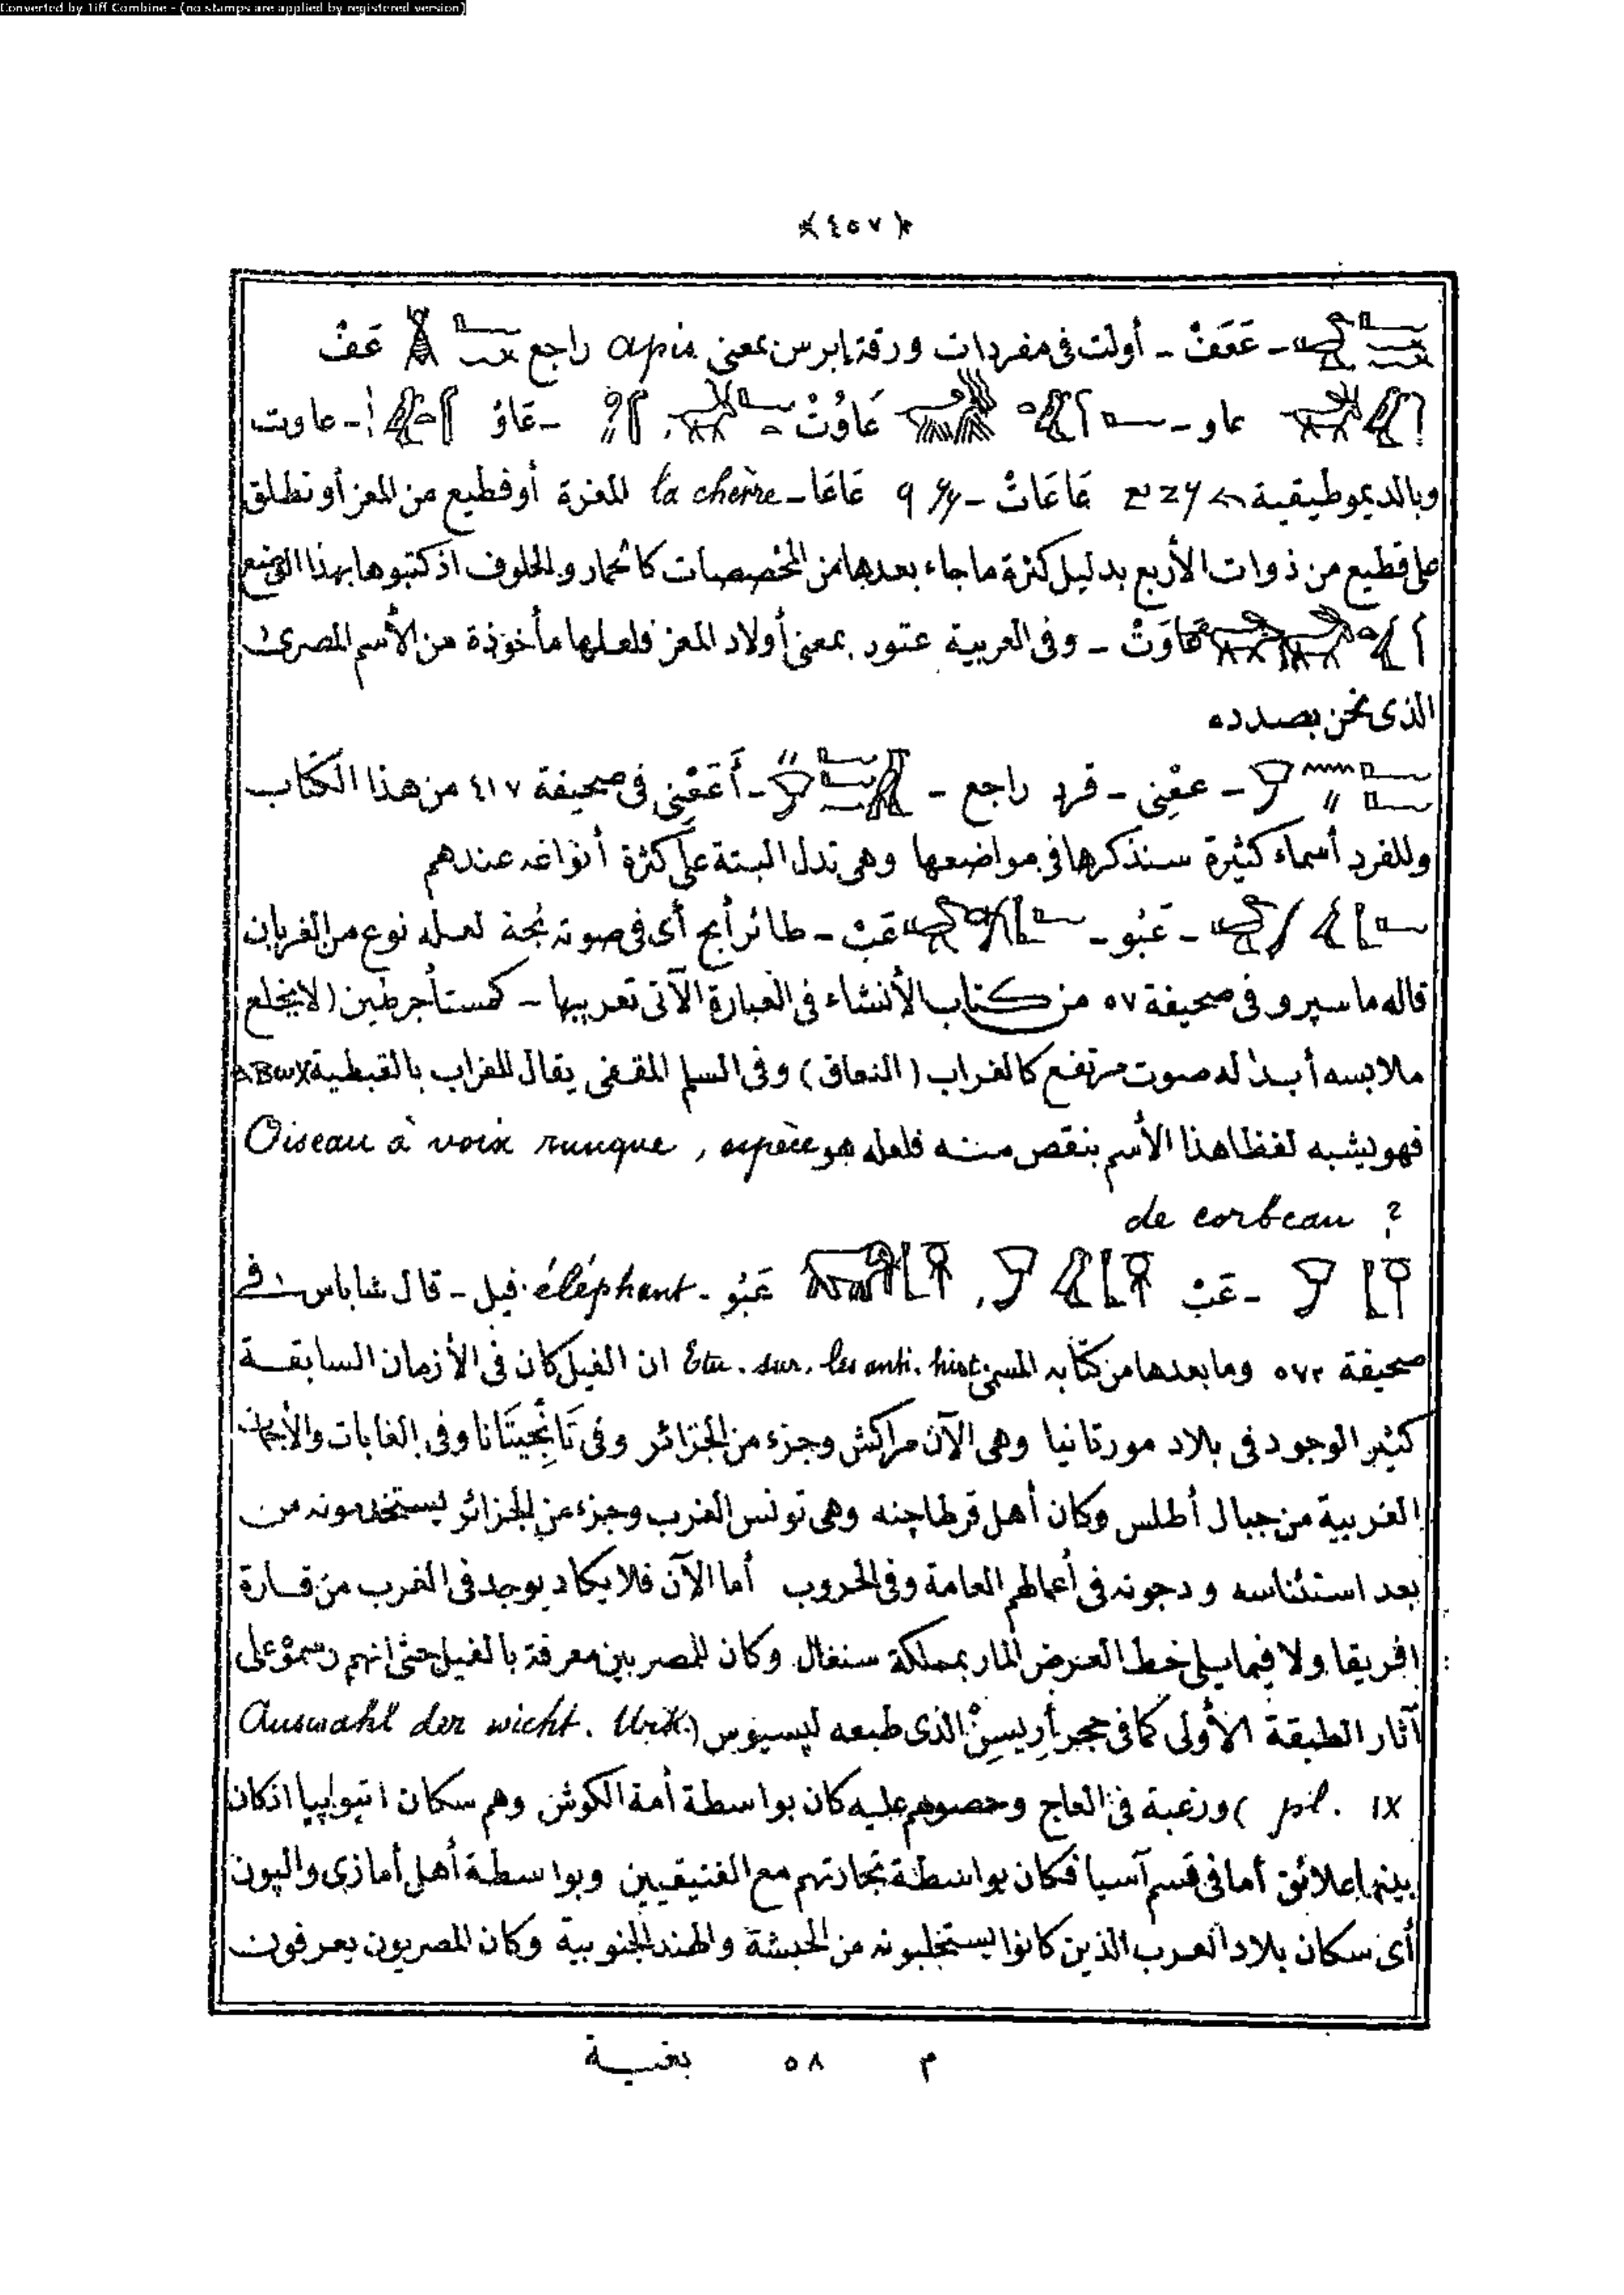 Converted by Tiff Combine - (no stamps are applied by registered version)
﴿٤٥٧﴾
- عَعَفْ - أولت فى مفردات ورقة إبرس بمعنى apis راجع عَفْ
عاو - عَاوُتْ - عَاوُ - عاوت
وبالديموطيقية عَاعَاتْ - عَاعَا - la chèvre للعنزة أو قطيع من المعز أو تطلق
على قطيع من ذوات الأربع بدليل كثرة ما جاء بعدها من المخصصات كالحمار والحلوف اذ كتبوها بهذا الوضع
عَاوَتْ - وفى العربية عتود بمعنى أولاد المعز فلعلها مأخوذة من الأسم المصرى
الذى نحن بصدده
- عـعْنِى - قرد راجع - أَعَعْنِى فى صحيفة ٤١٧ من هذا الكتاب
وللقرد أسماء كثيرة سنذكرها فى مواضعها وهى تدل البتة على كثرة أنواعه عندهم
- عَبُو - عَبْ - طائر أبح أى فى صوته بُحة لعله نوع من الغربان
قاله ماسپرو فى صحيفة ٥٧ من كتاب الأنشاء فى العبارة الآتى تعريبها - كمستأجر طين (لا يخلع
ملابسه أبدا له صوت مرتفع كالغراب (النعاق) وفى السلم المقفى يقال للغراب بالقبطية ⲁⲃⲱⲕ
فهو يشبه لفظا هذا الأسم بنقص منه فلعله هو Oiseau à voix rauque, espèce
de corbeau ?
- عَبْ عَبُو - éléphant فيل - قال شاباس فى
صحيفة ٥٧٢ وما بعدها من كتابه المسمى Etu. sur. les anti. hist ان الفيل كان فى الأزمان السابقة
كثير الوجود فى بلاد مورتانيا وهى الآن مراكش وجزء من الجزائر وفى تَانْجِيتَانا وفى الغابات والأجمات
الغربية من جبال أطلس وكان أهل قرطاجنه وهى تونس الغرب وجزء من الجزائر يستخدمونه من
بعد استئناسه ودجونه فى أعمالهم العامة وفى الحروب أما الآن فلا يكاد يوجد فى الغرب من قارة
افريقا ولا فيما يلى خط العرض المار بمملكة سنغال وكان للمصريين معرفة بالفيل حتى انهم رسموه على
آثار الطبقة الأولى كما فى حجر الذى طبعه ليسيوس (Auswahl der wicht. Urk.
pl. IX) ورغبة فى العاج وحصولهم عليه كان بواسطة أمة الكوش وهم سكان اتيوبيا اذ كان
بينهما علائق أما فى قسم آسيا فكان بواسطة تجارتهم مع الفنيقيين وبواسطة أهل أمازى والپون
أى سكان بلاد العرب الذين كانوا يستجلبونه من الحبشة والهند الجنوبية وكان المصريون يعرفون
م ٥٨ بغية